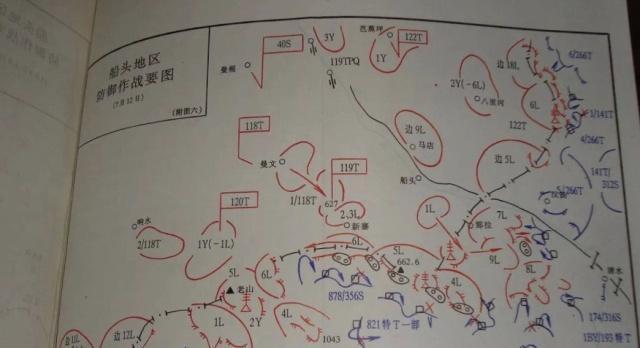 船头地区
防御作战要图
(7月12日)
(附图六)
40S
3Y
芭蕉坪
122T
1Y
曼棍
119TPQ
边18L
6/266T
2Y(-6L)
八里河
6L
1/141T
122T
4/266T
118T
边9L
马店
边5L
141T/
312S
曼文
119T
船头
5/266T
1/118T
627
120T
2,3L
1L
7L
响水
新寨
那拉
2/118T
1Y(-1L)
6L
5L
9L
清水
5L
6L
662.6
8L
老山
4L
878/356S
174/316S
边11L
边12L
1L
2Y
4L
1043
821特T一部
1BY/193特T